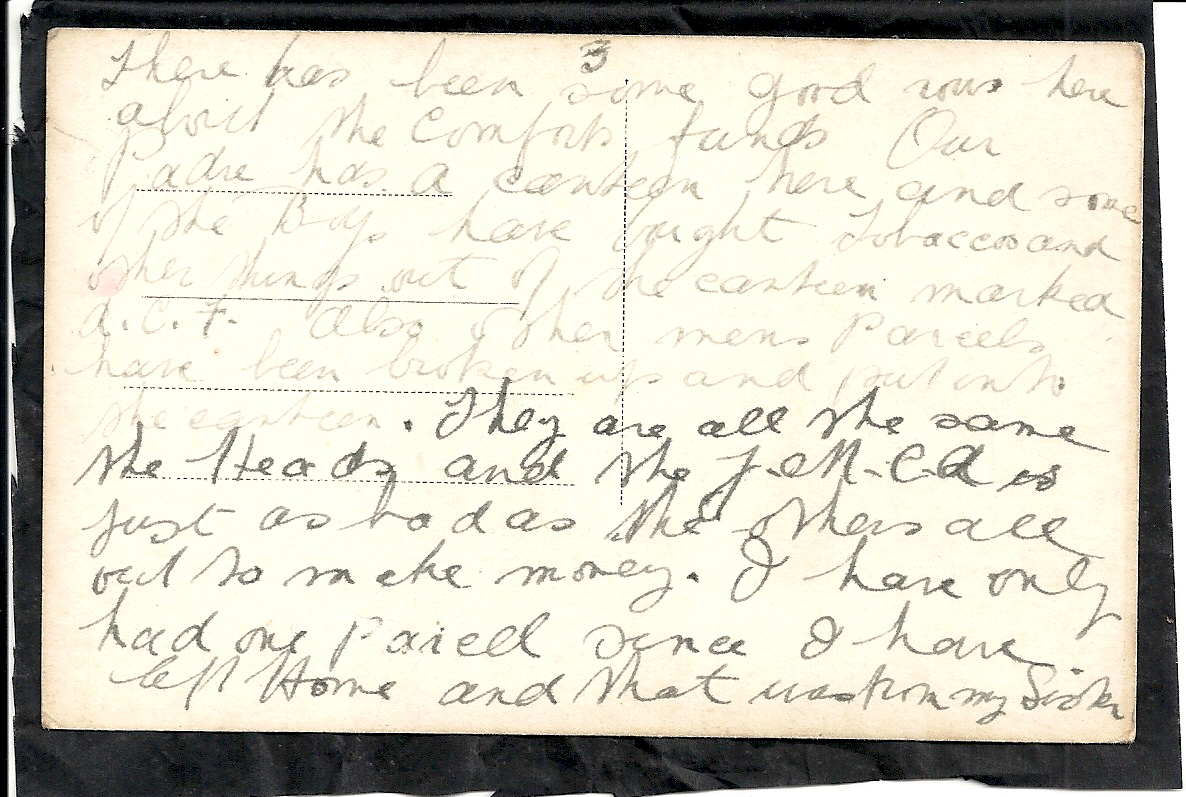 3
There has been some good rows here
about the Comforts funds Our
Padre has a canteen here and some
of the Boys have bought Tobaccos and
other things out of the canteen marked
A.C.F. also other mens Parcels
have been broken up and put into
the canteen. They are all the same
the Heads and the Y.M.C.A is
just as bad as the others all
out to make money. I have only
had one Parcell since I have
left Home and that was from my Sister